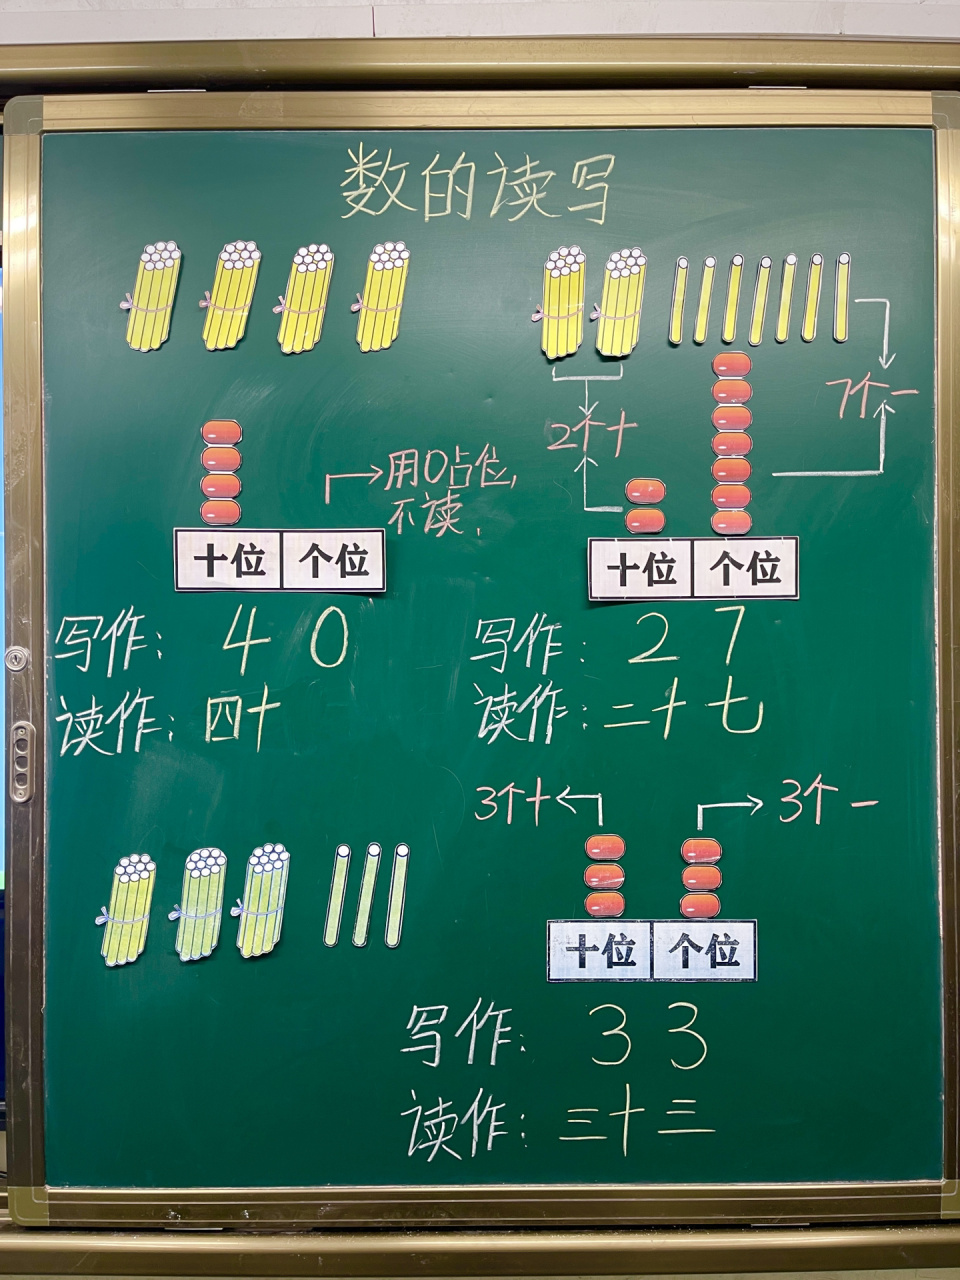 数的读写
用0占位,
不读.
十位 个位
写作: 40
读作: 四十
7个一
2个十
十位 个位
写作: 27
读作: 二十七
3个十
3个一
十位 个位
写作: 33
读作: 三十三